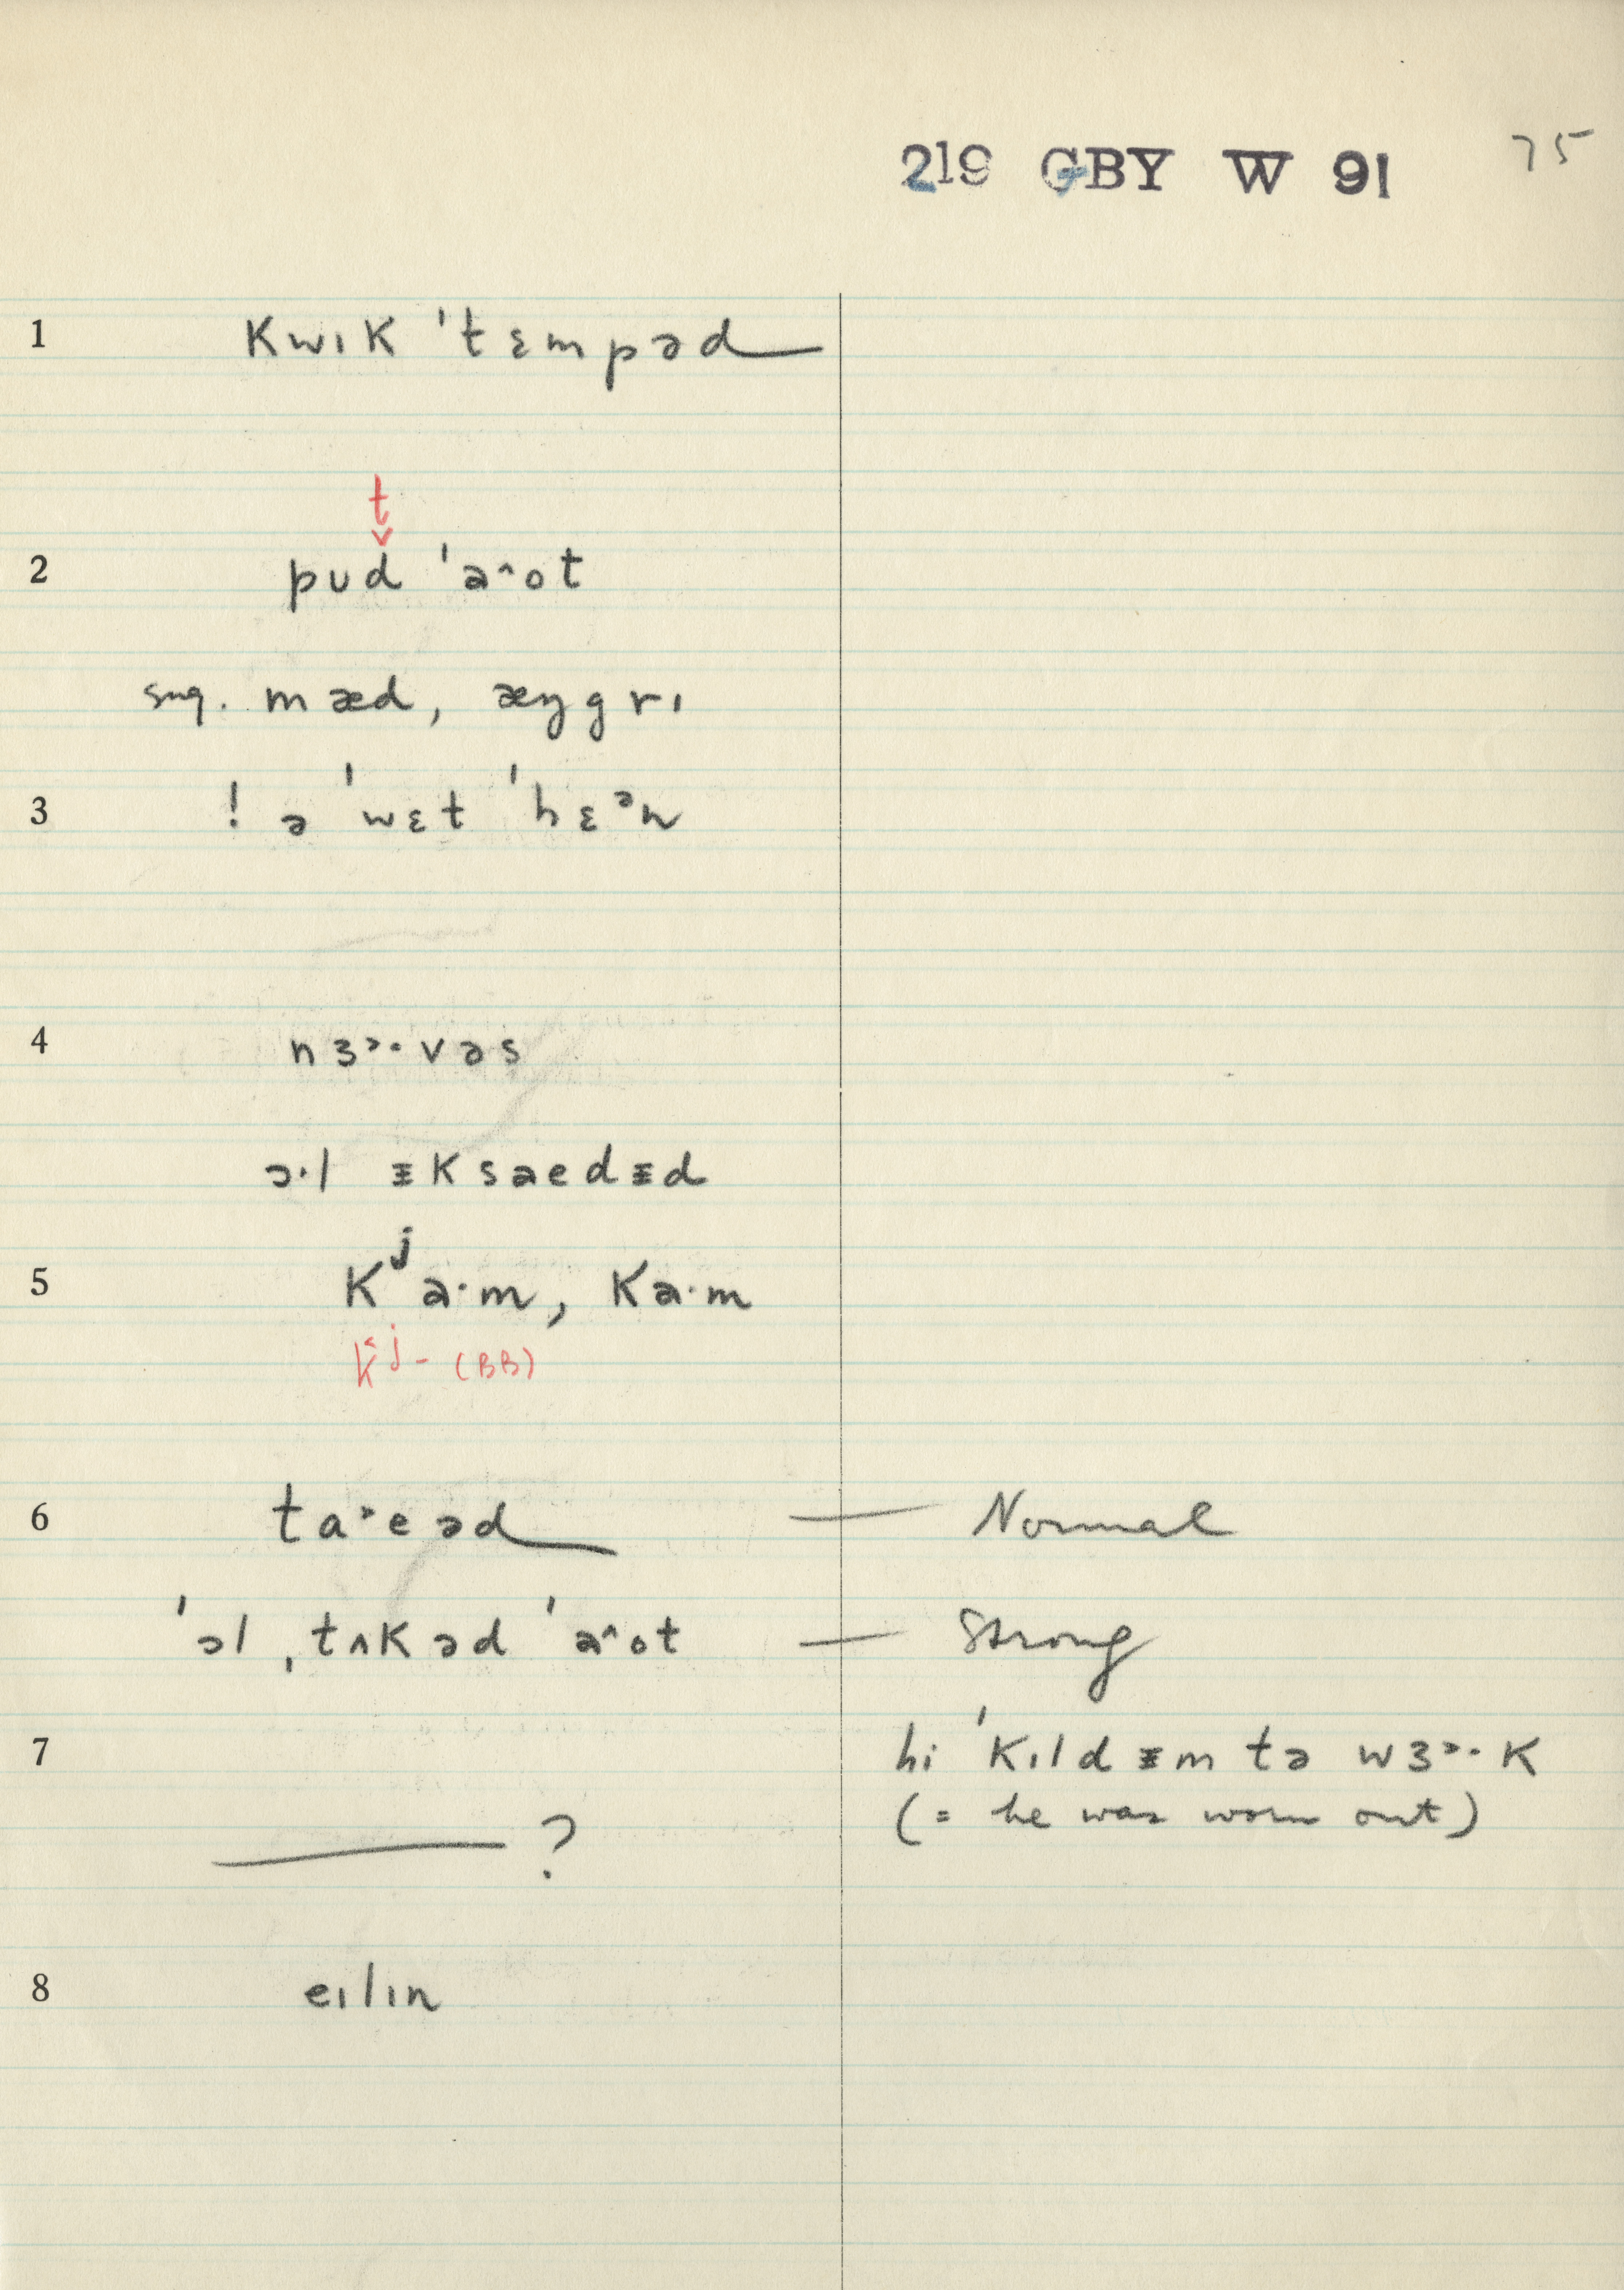 219 GBY W 91 75
1 kwɪk ˈtɛmpəd
t
2 pʊd ˈa^ot
sug. mæd, æŋgrɪ
3 ! ə ˈwɛt ˈhɛᵊn
4 nɜ˞·vəs
ɔ·l ᵻksaedᵻd
5 kʲa·m, ka·m
k̂ʲ- (BB)
6 ta˃eəd — Normal
ˈɔl ˌtʌkəd ˈa^ot — Strong
7 hi ˈkɪldᵻm tə wɜ˞·k
(= he was worn out)
——— ?
8 eɪlɪn